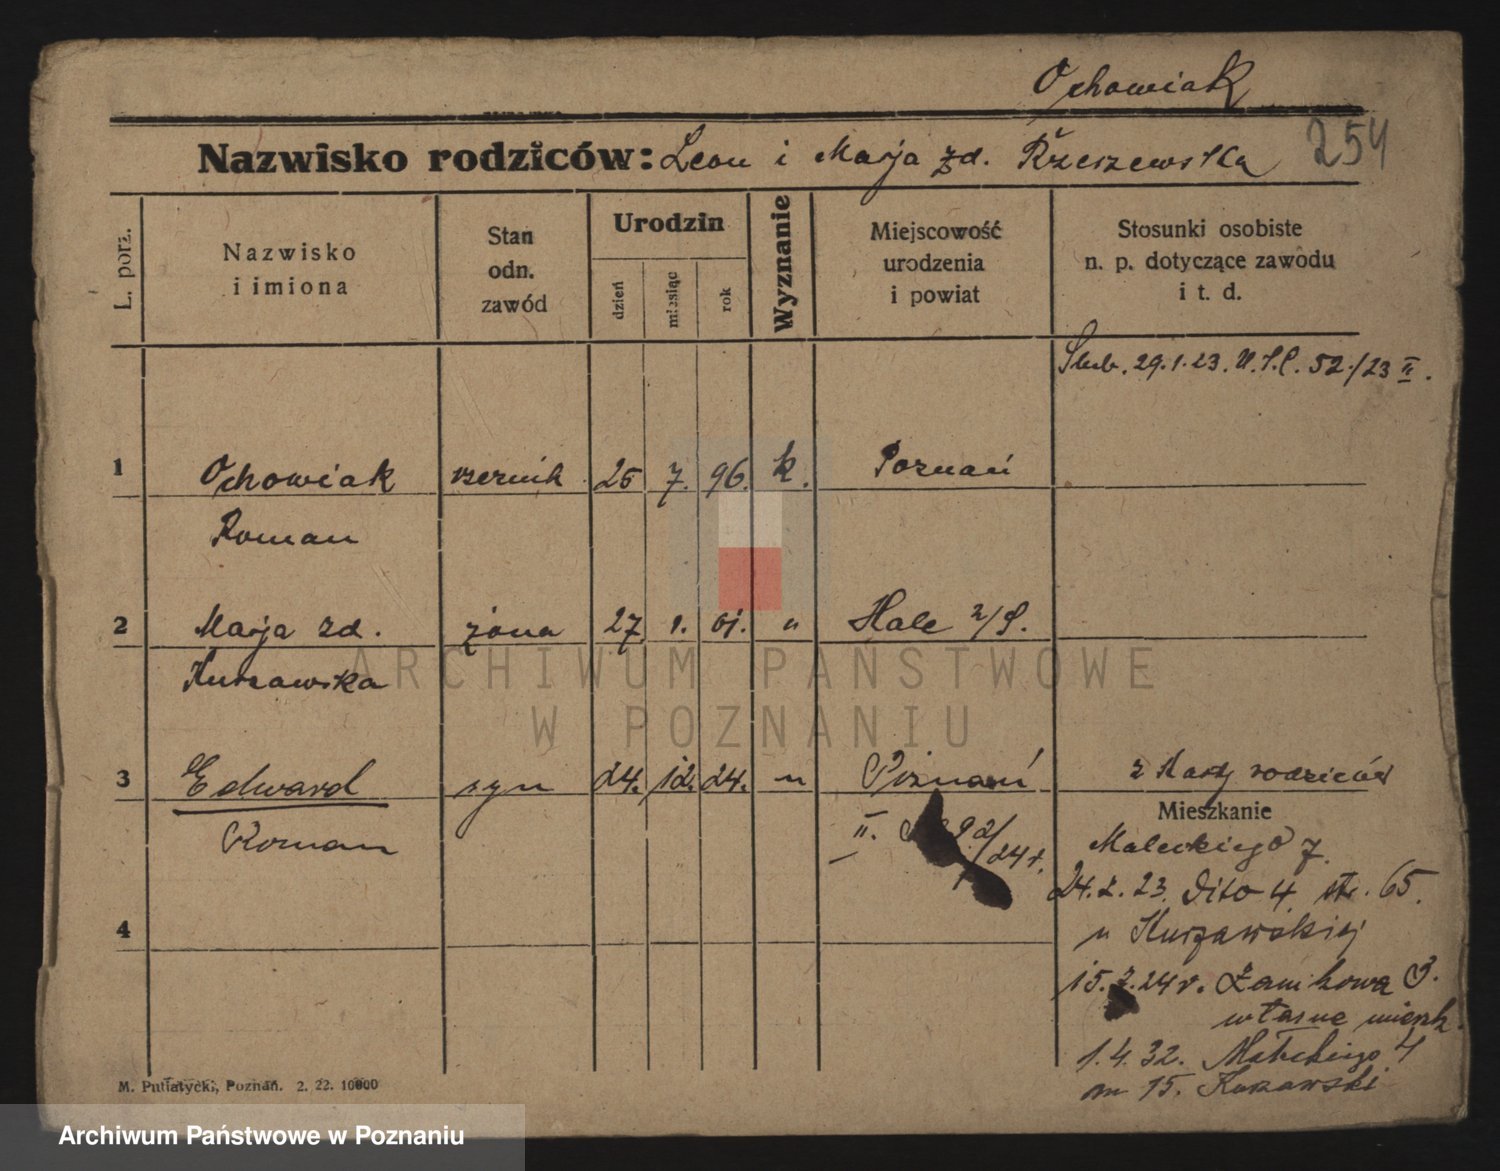 Ochowiak
Nazwisko rodziców: Leon i Marja zd. Rzeszewska
254
L. porz.
Nazwisko
i imiona
Stan
odn.
zawód
Urodzin
dzień
miesiąc
rok
Wyznanie
Miejscowość
urodzenia
i powiat
Stosunki osobiste
n. p. dotyczące zawodu
i t. d.
Ślub. 29.1.23. U.S.C. 52./23 II.
1 Ochowiak rzeźnik 7. 96. k. Poznań
Roman
2 Marja zd. żona 27. 1. 01. " Hale n/S.
Kurzawska
3 Edward syn 24. 12. 24. " Poznań z karty rodziców
Roman
II.
/24 r.
Mieszkanie
Małeckiego 7.
24.2.23. dito 4 str. 65.
u Kurzawskiej
4
15.7.24 r. Zamkowa 3.
własne mieszk.
1.4.32. Małeckiego 4
m 15. Kurzawski
M. Putiatycki, Poznań. 2. 22. 10000
ARCHIWUM PAŃSTWOWE
W POZNANIU
Archiwum Państwowe w Poznaniu